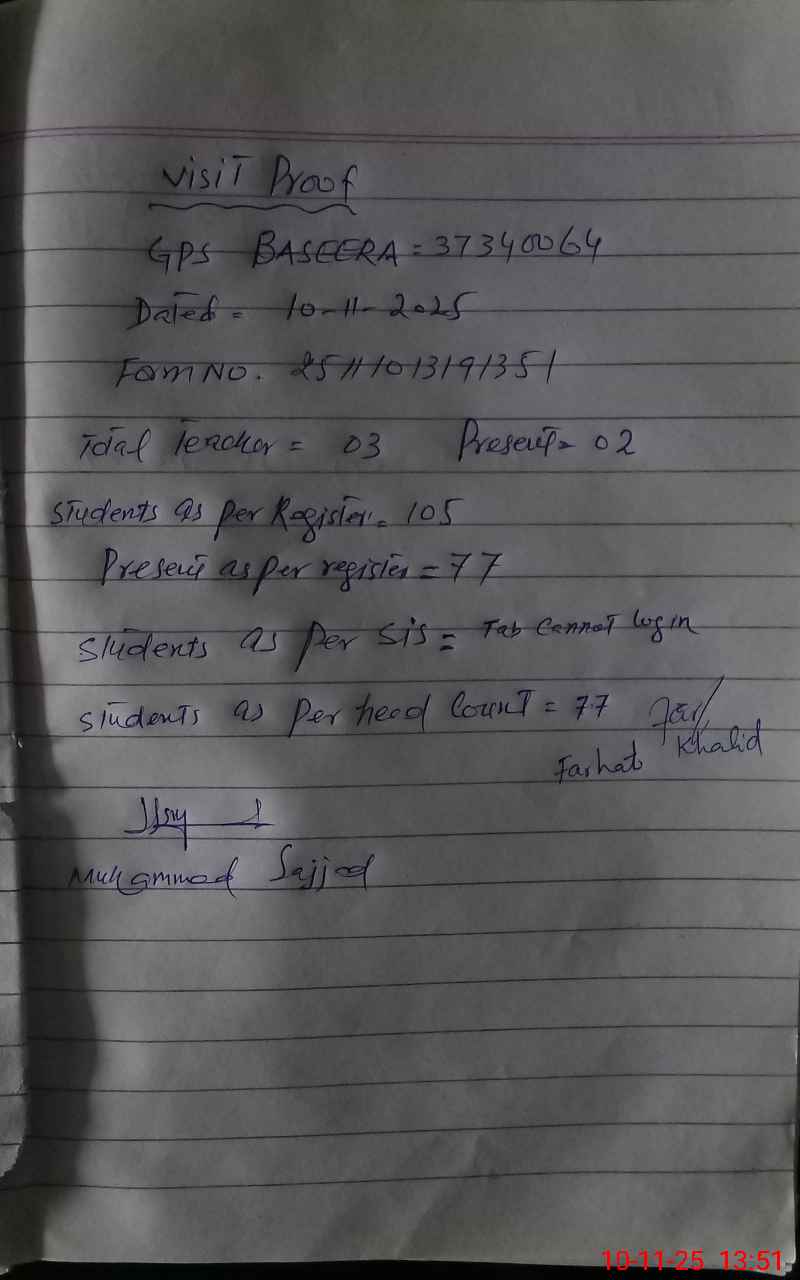 Visit Proof
GPS BASEERA = 37340064
Dated = 10-11-2025
Form NO. 25111013191351
Total Teacher = 03 Present = 02
Students as per Register = 105
Present as per register = 77
Students as per Sis = Tab Cannot login
Students as per head Count = 77
Farhat Khalid
Muhammad Sajjad
10-11-25 13:51